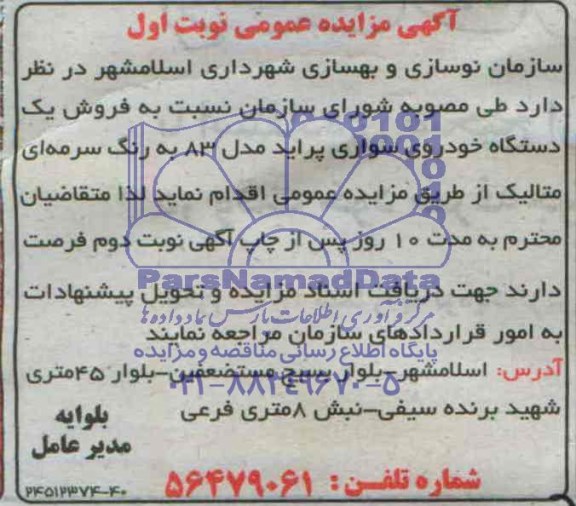 آگهی مزایده عمومی نوبت اول
سازمان نوسازی و بهسازی شهرداری اسلامشهر در نظر
دارد طی مصوبه شورای سازمان نسبت به فروش یک
دستگاه خودروی سواری پراید مدل ۸۳ به رنگ سرمه‌ای
متالیک از طریق مزایده عمومی اقدام نماید لذا متقاضیان
محترم به مدت ۱۰ روز پس از چاپ آگهی نوبت دوم فرصت
دارند جهت دریافت اسناد مزایده و تحویل پیشنهادات
به امور قراردادهای سازمان مراجعه نمایند
آدرس: اسلامشهر-بلوار بسیج مستضعفین-بلوار ۴۵متری
شهید برنده سیفی-نبش ۸متری فرعی
بلوایه
مدیر عامل
شماره تلفن: ۵۶۴۷۹۰۶۱
۲۴۵۱۲۳۷۴-۴۰
ParsNamadData
مرکز فرآوری اطلاعات پارس نماد داده ها
پایگاه اطلاع رسانی مناقصه و مزایده
۰۲۱-۸۸۳۴۹۶۷۰-۵